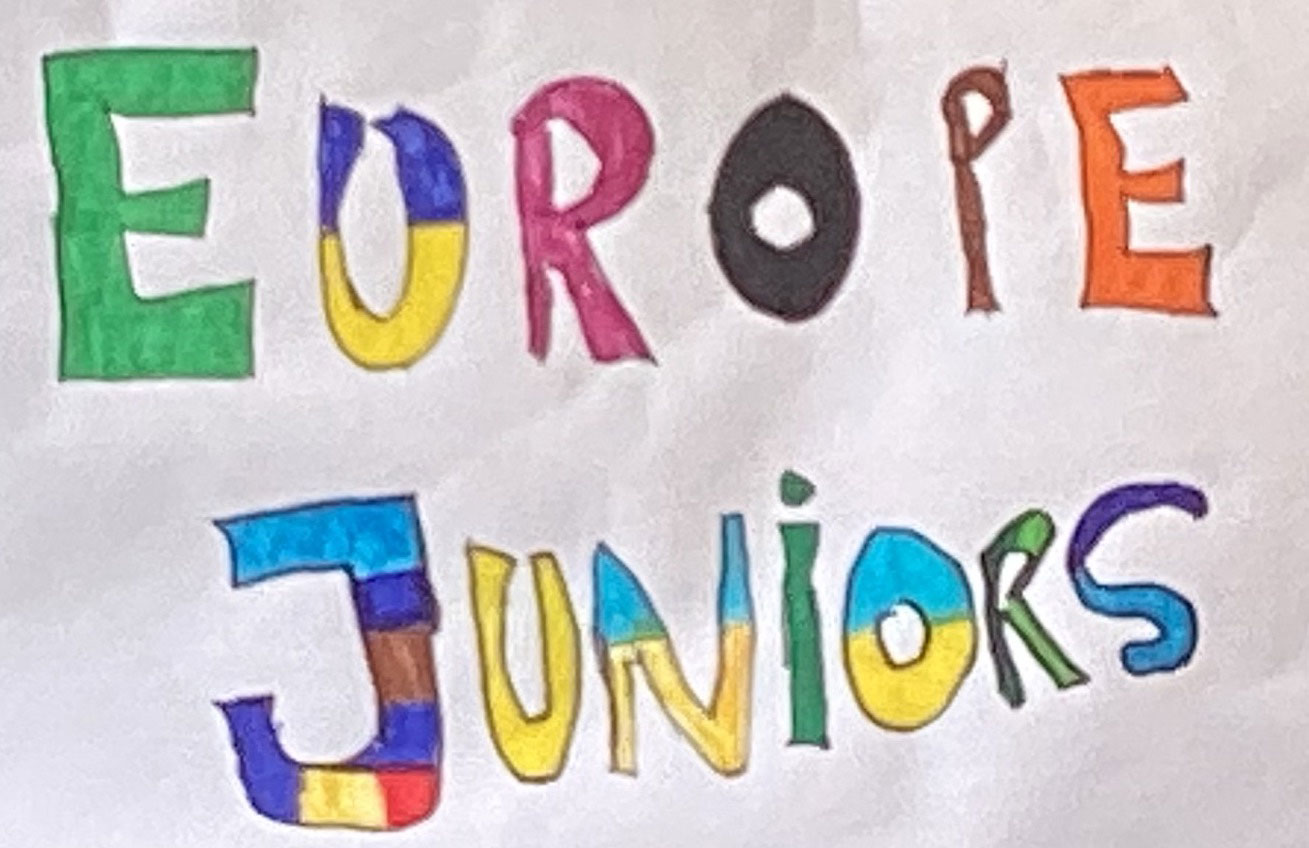 EUROPE
JUNiORS